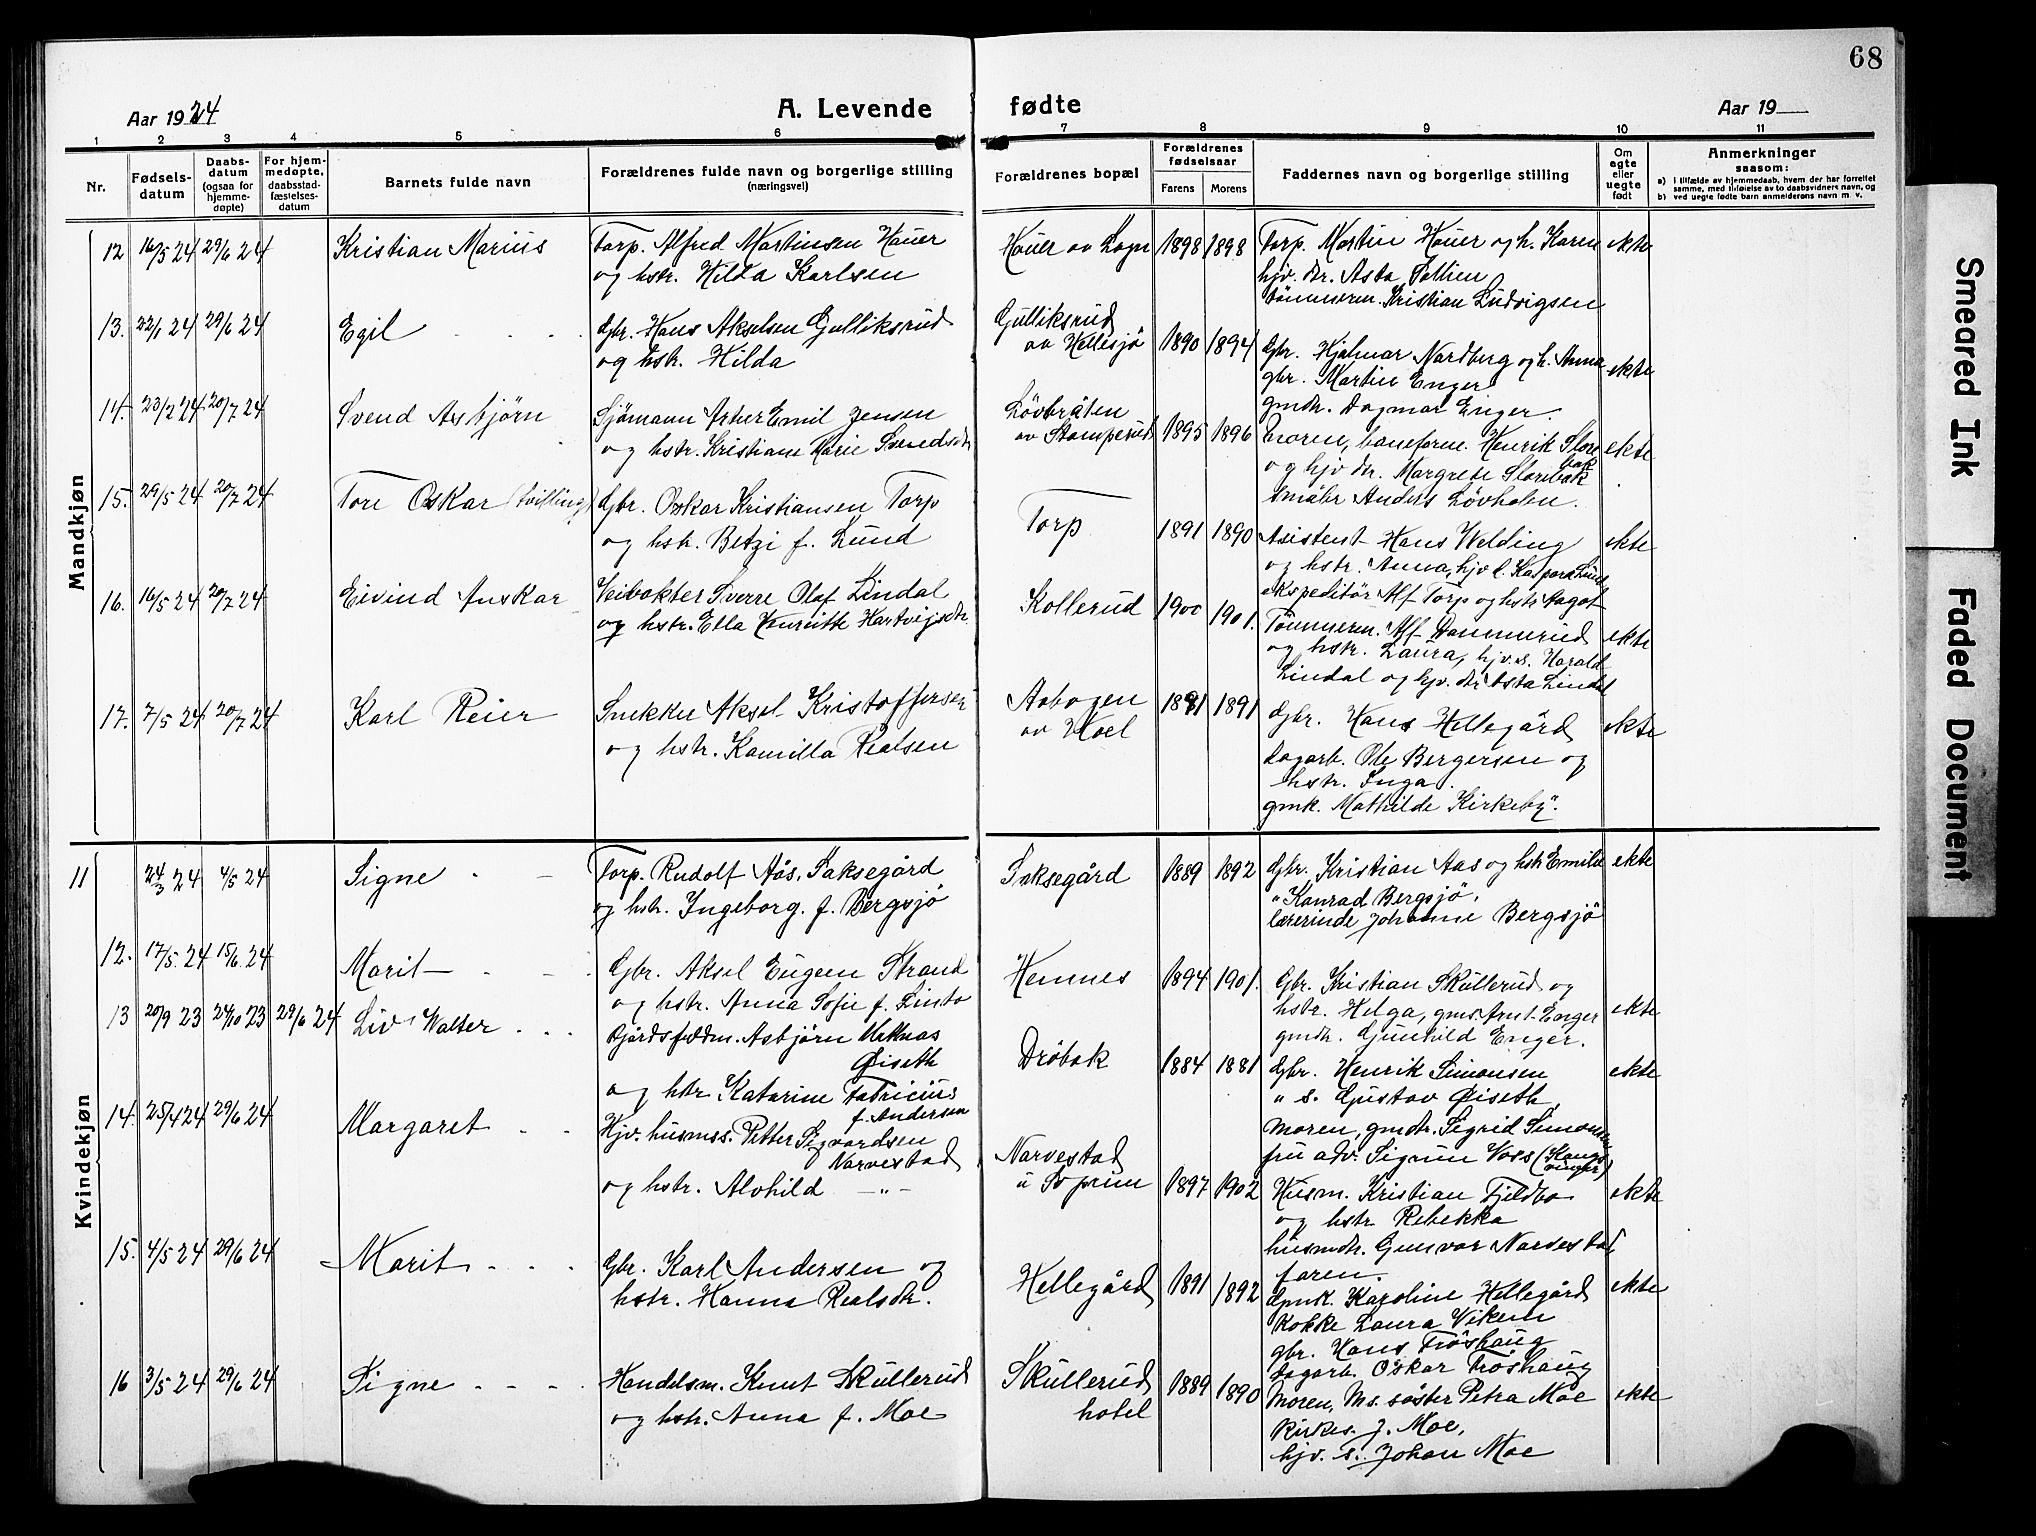 68
Aar 1924
A. Levende fødte
Aar 19
1 2 3 4 5 6 7 8 9 10 11
Nr.
Fødsels-
datum
Daabs-
datum
(ogsaa for
hjemme-
døpte)
For hjem-
medøpte,
daabsstad-
fæstelses-
datum
Barnets fulde navn
Forældrenes fulde navn og borgerlige stilling
(næringsvei)
Forældrenes bopæl
Forældrenes
fødselsaar
Farens Morens
Faddernes navn og borgerlig stilling
Om
egte
eller
uegte
født
Anmerkninger
saasom:
a) i tilfælde av hjemmedaab, hvem der har forrettet
samme, med tilføielse av to daabsvidners navn, og
b) ved uegte fødte barn anmelderens navn m. v.
Mandkjøn
12 16/5 24 29/6 24 Kristian Marius
Torp. Alfred Martinsen Hauer
og hstr. Hilda Karlsen
Hauer av Sogn 1898 1898
Torp. Martin Hauer og h. Karen
hjv. dr. Asta
tømmerm. Kristian Ludvigsen
ekte
13. 22/1 24 29/6 24 Egil
Gbr. Hans Akselsen Gulliksrud
og hstr. Hilda
Gulliksrud
av Hellesjö 1890 1894
Gbr. Hjalmar Nordberg og h. Anna
gbr. Martin Enger
gmdr. Dagmar Enger.
ekte
14. 23/2 24 20/7 24 Svend Asbjörn
Sjömann Artur Emil Jensen
og hstr. Kristiane Marie Svendsdr
Lövbråten
av Stomperud 1895 1896
Moren, baneform. Henrik Store
bak
og hjv dr. Margrete Storebak
småbr Anders Lövholen.
ekte
15. 29/5 24 20/7 24 Tore Oskar (tvilling)
Gbr. Oskar Kristiansen Torp
og hstr. Betzi f. Lund
Torp 1891 1890
Asistent Hans Welding
og hstr. Anna, hjv. Kaspara Lund
ekspeditör Alf Torp og hstr Aagot
ekte
16. 16/5 24 20/7 24 Eivind Anskar
Veivokter Sverre Olaf Lindal
og hstr. Ella Henriette Hartvigsdr.
Kollerud 1900 1901.
Tömmerm. Alf Dammerud
og hstr. Laura, hjv. s. Harald
Lindal og hjv. dr Asta Lindal
ekte
17. 7/5 24 20/7 24 Karl Reier
Snekker Aksel Kristoffersen
og hstr. Kamilla Realsen
Aabogen
av Hoel 1891 1891
Gbr. Hans Hellegård
Dagarb. Ole Bergersen og
hstr. Inga.
gmk. Mathilde Kirkeby".
ekte
Kvindekjøn
11 24/3 24 4/5 24 Signe
Torp. Rudolf Aas, Saksegård
og hstr. Ingeborg. f. Bergsjö
Saksegård 1889 1892
Gbr. Kristian Aas og hstr Emilie
" Konrad Bergsjö,
lærerinde Johanne Bergsjö
ekte
12. 17/5 24 15/6 24 Marit
Gbr. Aksel Eugen Strand
og hstr. Anna Sofie f. Finto
Hemnes 1894 1901.
Gbr. Kristian Skullerud og
hstr. Helga, gms. Arnt Enger
gmdr. Gunhild Enger.
ekte
13 20/9 23 24/10 23 29/6 24 Liv Walter
Asbjörn
Øiseth
og hstr Katarine Fabricius
f. Andersen
Dröbak 1884 1881
Gbr. Henrik Simonsen
" s. Gustav Øiseth,
Moren, gmdr. Sigrid Simonsen
fru adv. Sigrun Voss (Kongs
vinger)
ekte
14. 25/4 24 29/6 24 Margaret
Hjv. husmss. Petter Sigvardsen
Narvestad
og hstr. Alvhild —"—
Narvestad
u Soprum 1897 1902
Husm. Kristian Fjeldbo
og hstr Rebekka
husmdr. Gunvor Narvestad,
faren.
ekte
15. 4/5 24 29/6 24 Marit
Gbr. Karl Andersen og
hstr. Hanna Realsdr.
Hellegård 1891 1892
Gmk. Karoline Hellegård
Kokke Laura Viken
gbr. Hans Tröshaug
Dagarb. Oskar Tröshaug
ekte
16 3/5 24 29/6 24 Signe
Handelsm. Knut Skullerud
og hstr. Anna f. Moe
Skullerud
hotel 1889 1890
Moren, Ms. söster Petra Moe
Kirkes. J. Moe,
hjv. s. Johan Moe
ekte
Smeared Ink
Faded Document